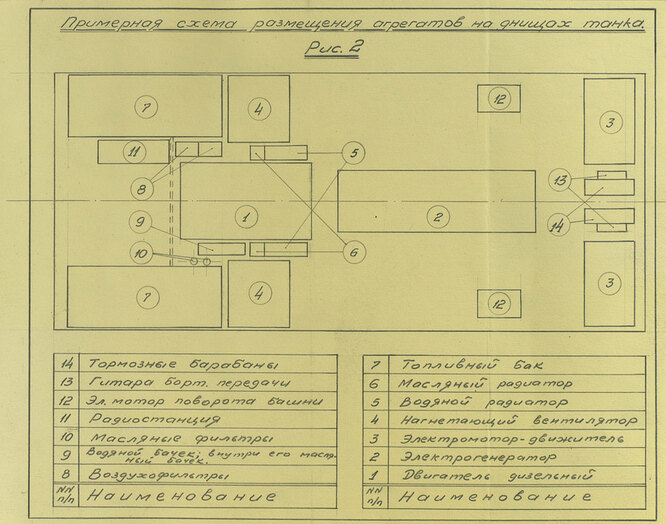 Примерная схема размещения агрегатов на днищах танка.
Рис. 2
7
4
12
3
11
5
13
8
1
2
14
9
10
6
7
4
12
3
14 Тормозные барабаны
13 Гитара борт. передачи
12 Эл. мотор поворота башни
11 Радиостанция
10 Масляные фильтры
9 Водяной бачек, внутри его масл.
ный бачек.
8 Воздухофильтры
NN п/п Наименование
7 Топливный бак
6 Масляный радиатор
5 Водяной радиатор
4 Нагнетающий вентилятор
3 Электромотор-движитель
2 Электрогенератор
1 Двигатель дизельный
NN п/п Наименование